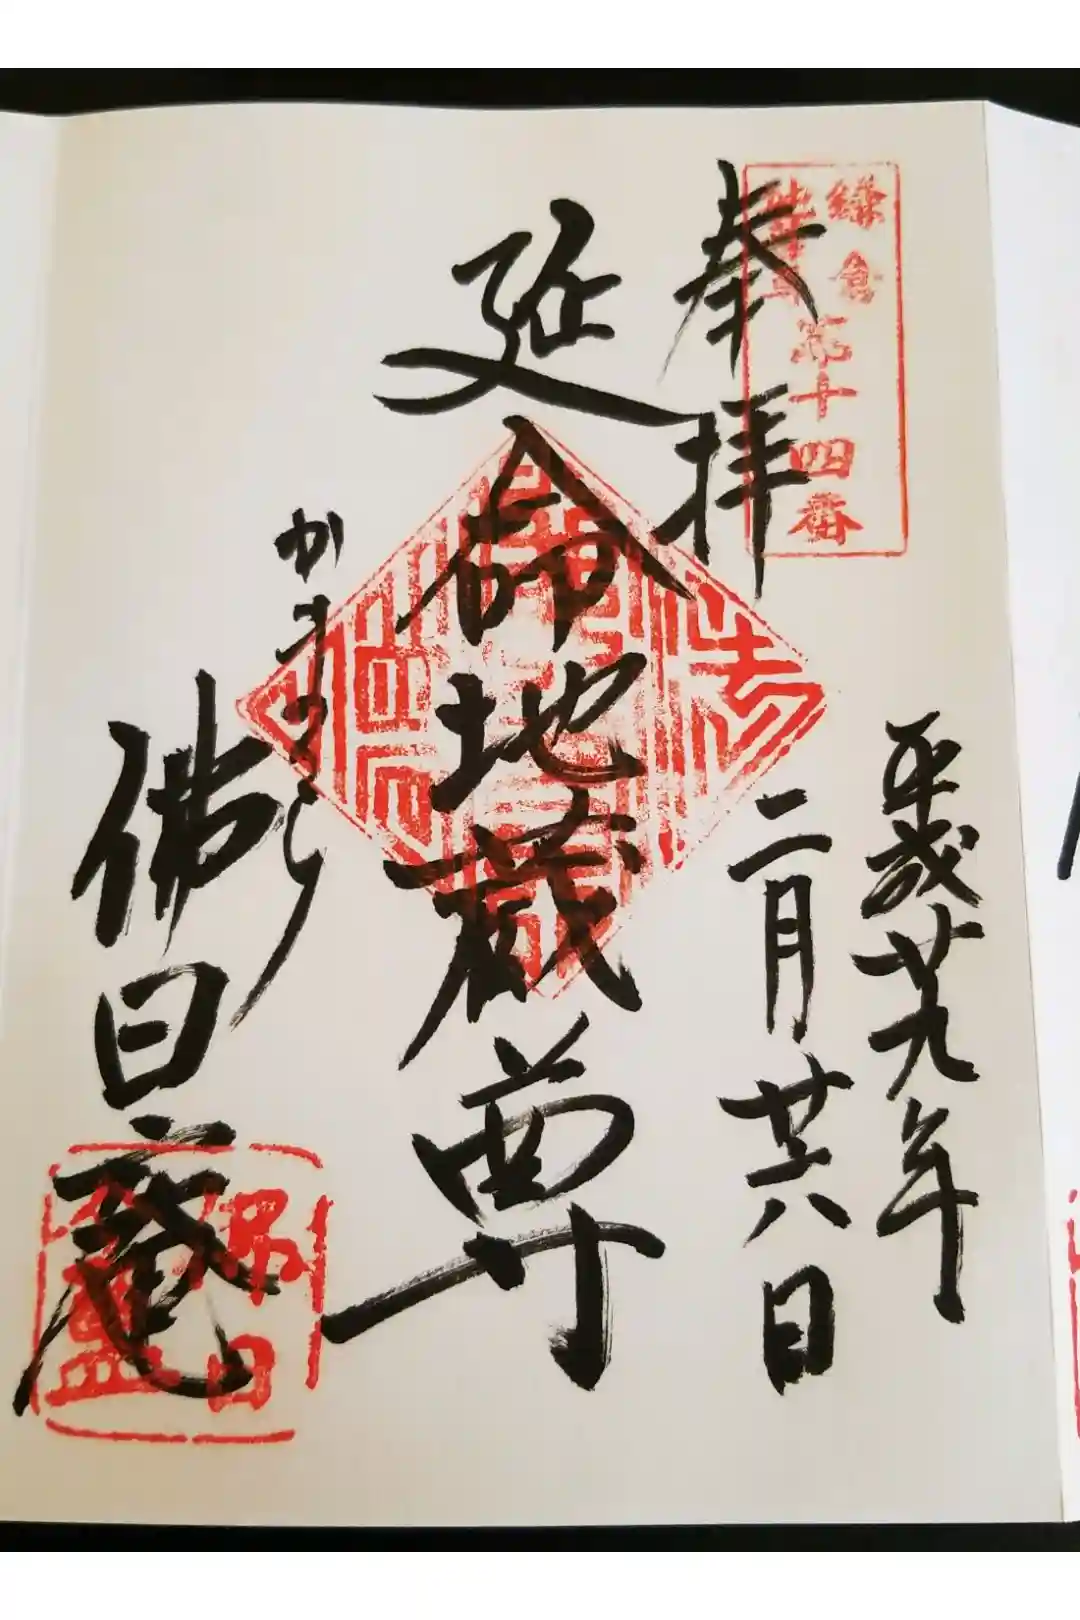 鎌倉
地蔵尊
第十四番
奉拝
平成廿九年
二月廿八日
延命地蔵尊
かまくら
佛日庵